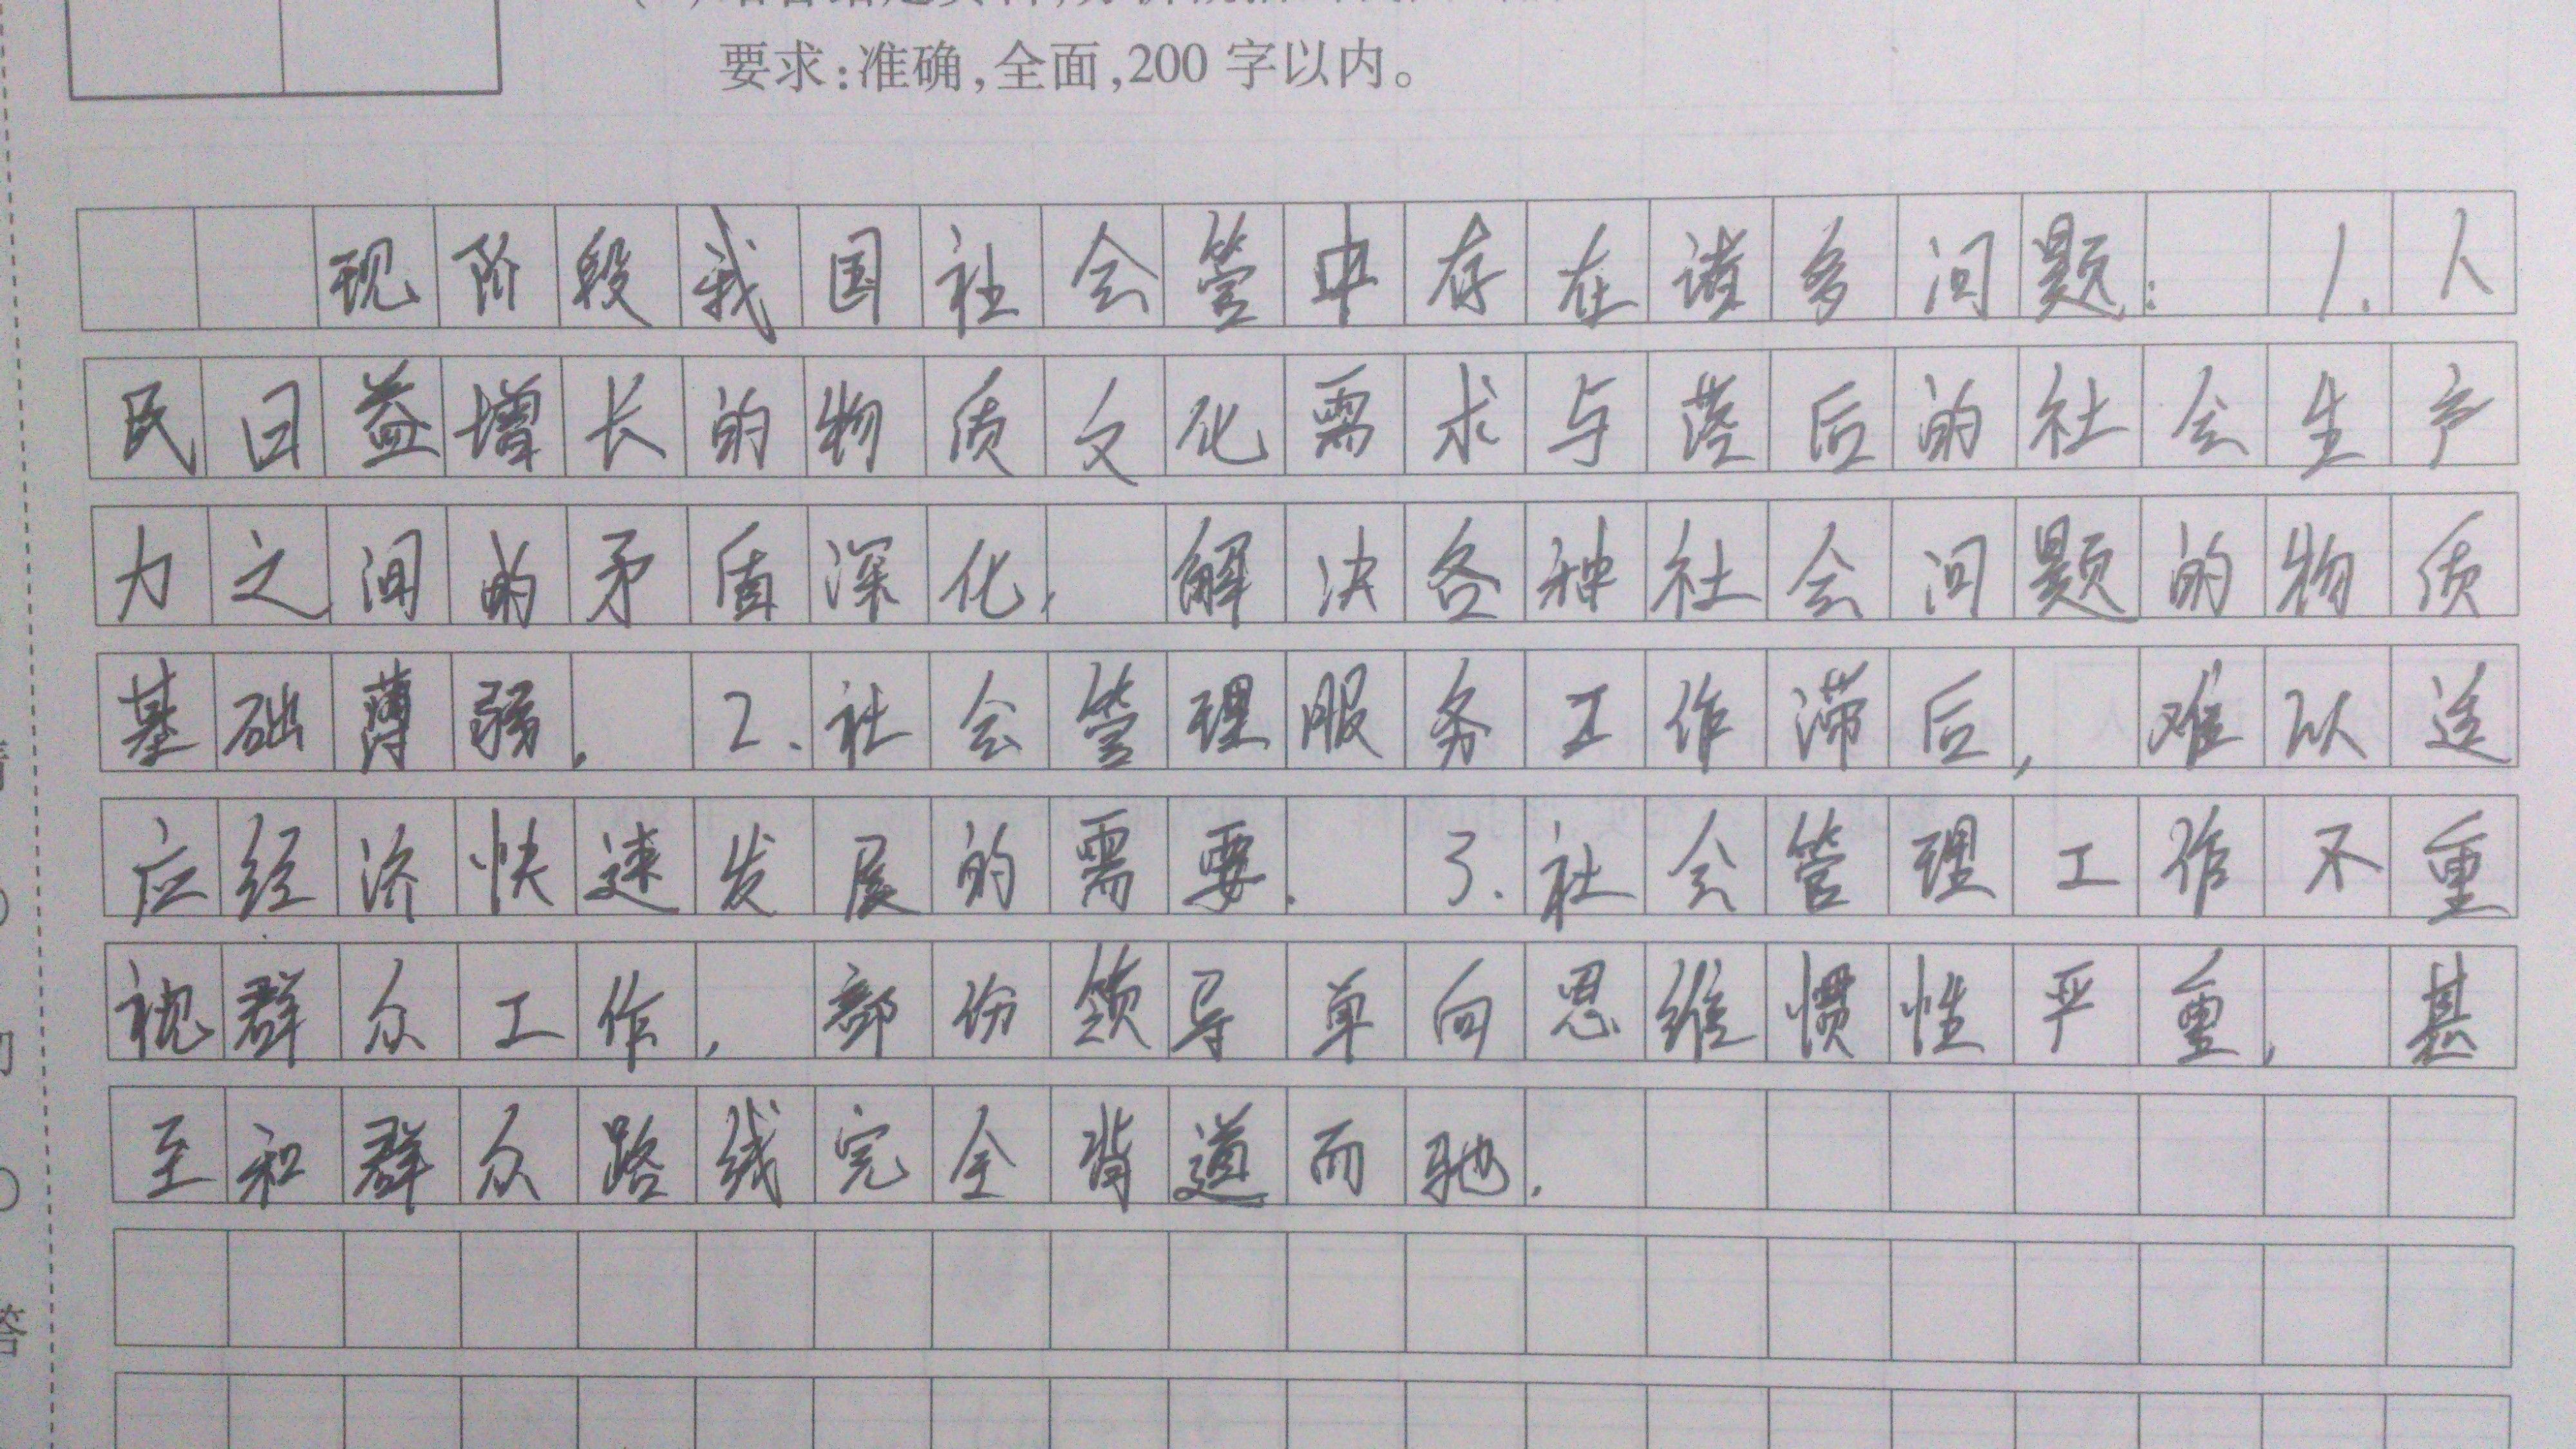 要求:准确,全面,200 字以内。
现阶段我国社会管中存在诸多问题: 1.人
民日益增长的物质文化需求与落后的社会生产
力之间的矛盾深化, 解决各种社会问题的物质
基础薄弱. 2.社会管理服务工作滞后, 难以适
应经济快速发展的需要. 3.社会管理工作不重
视群众工作, 部份领导单向思维惯性严重, 甚
至和群众路线完全背道而驰.